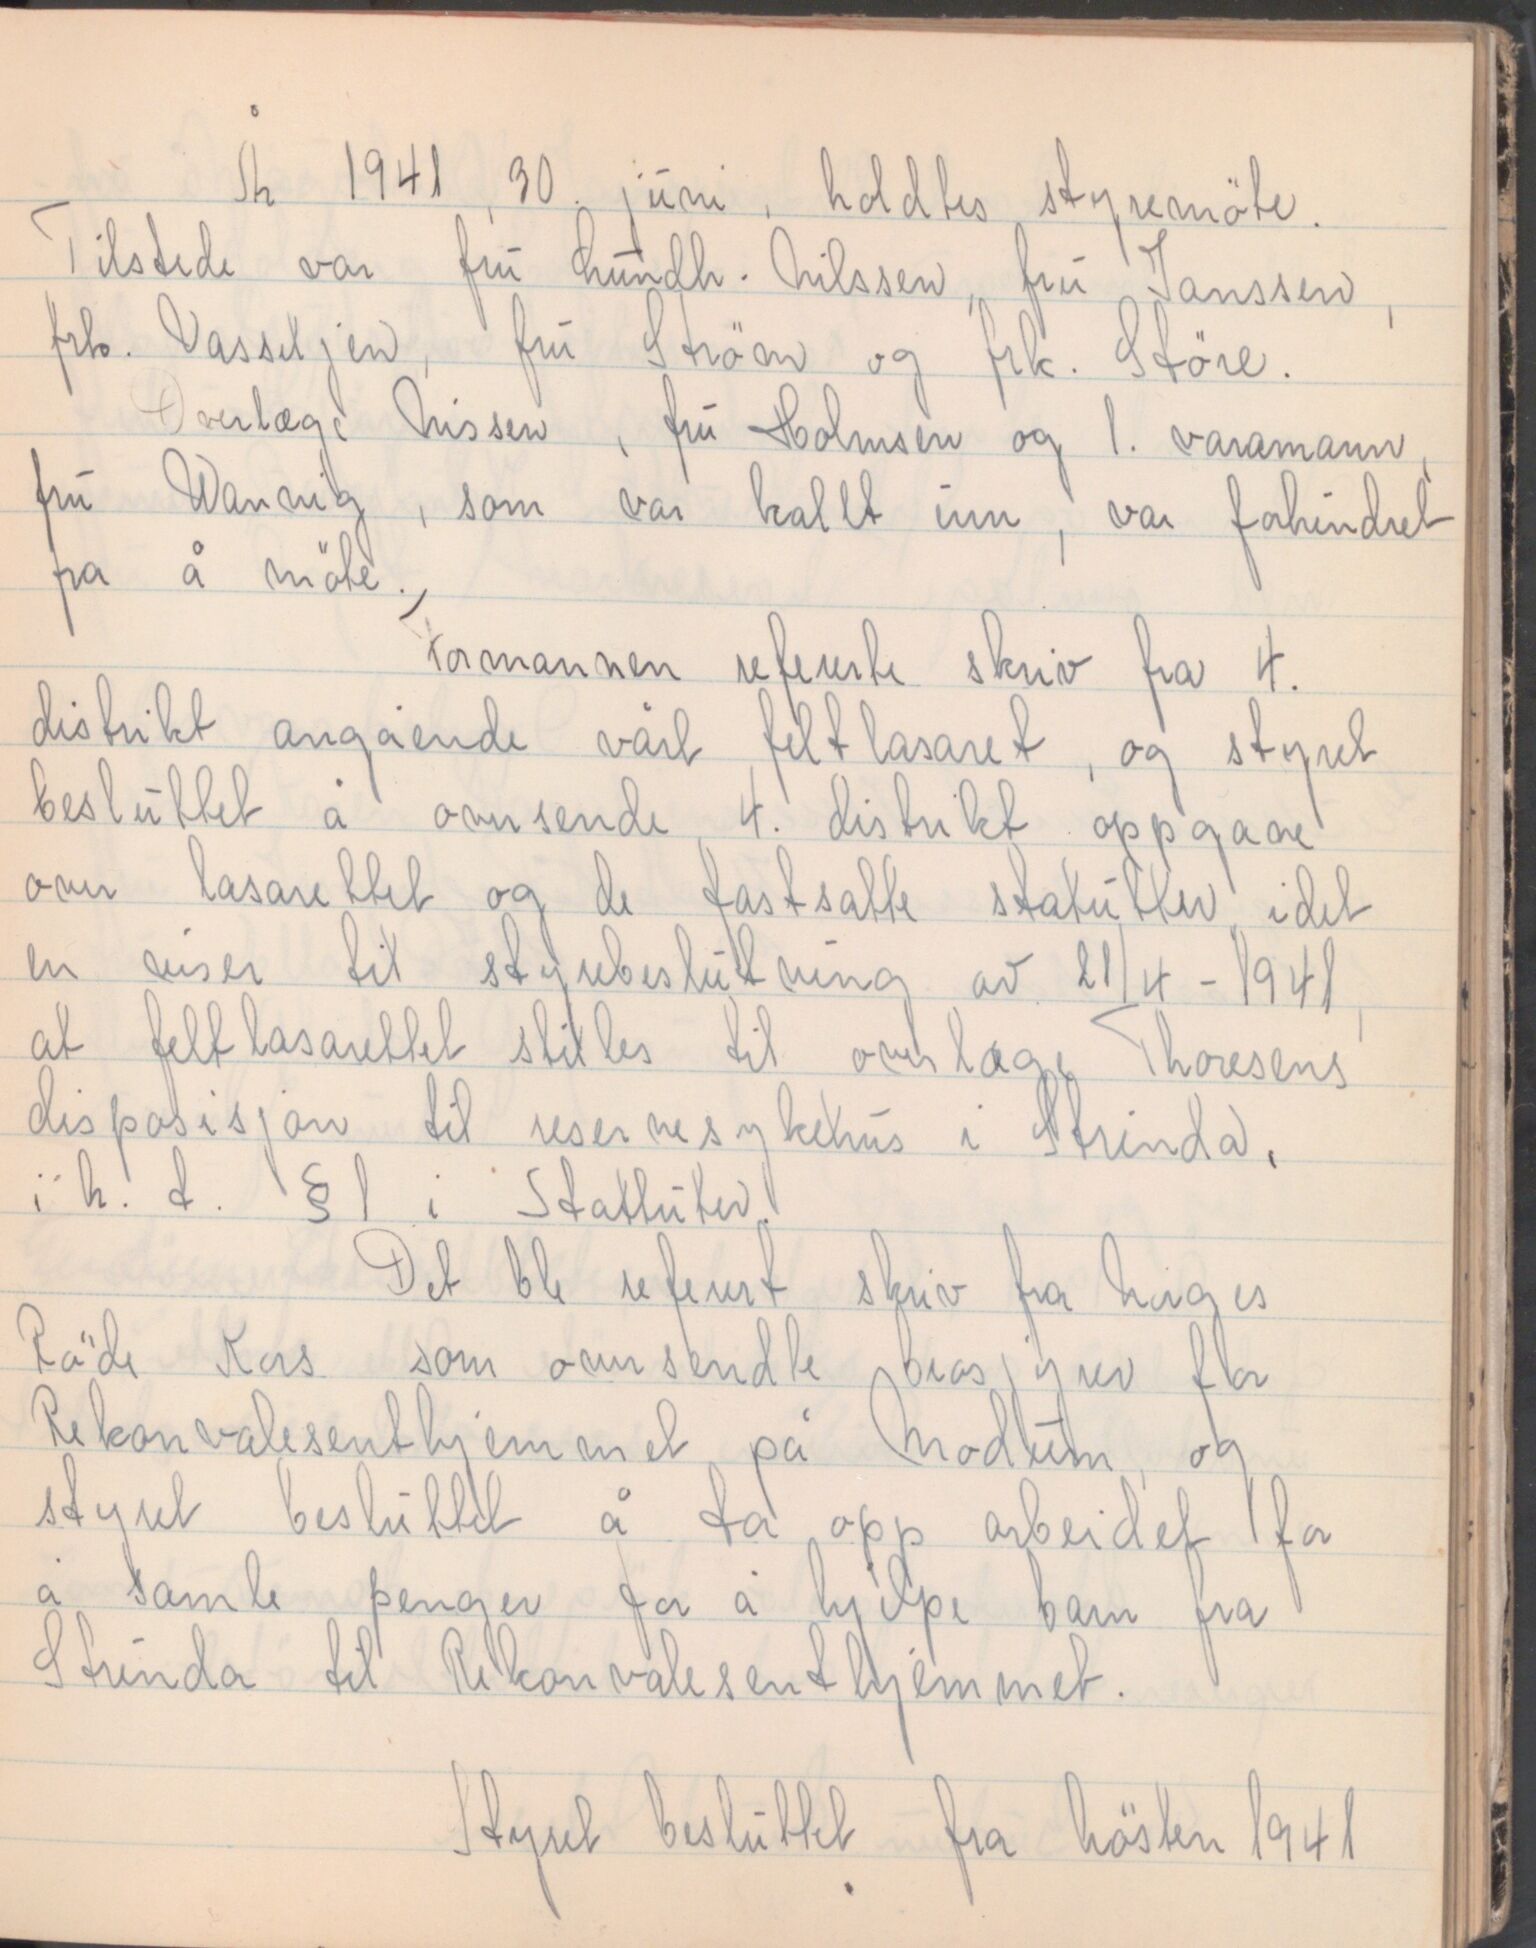 År 1941, 30. juni, holdtes styremöte.
Tilstede var fru Lundh. Nilssen, fru Janssen,
frk. Vasseljen, fru Ström og frk. Störe.
Overlæge Nissen, fru Holmsen og 1. varamann,
fru Wannig, som var kallt inn, var forhindret
fra å möte.
Formannen refererte skriv fra 4.
distrikt angående vårt feltlasaret, og styret
besluttet å oversende 4. distrikt oppgave
over lasarettet og de fastsatte statutter, idet
en viser til styrebeslutning av 21/4 - 1941,
at feltlasarettet stilles til overlæge Thoresens
disposisjon til reservesykehus i Strinda,
i h. t. § 1 i Stattuter.
Det ble referert skriv fra Norges
Röde Kors som oversendte brosjyrer for
Rekonvalesenthjemmet på Modum, og
styret besluttet å ta opp arbeidet for
å samle penger for å hjelpe barn fra
Strinda til Rekonvalesenthjemmet.
Styret besluttet fra hösten 1941